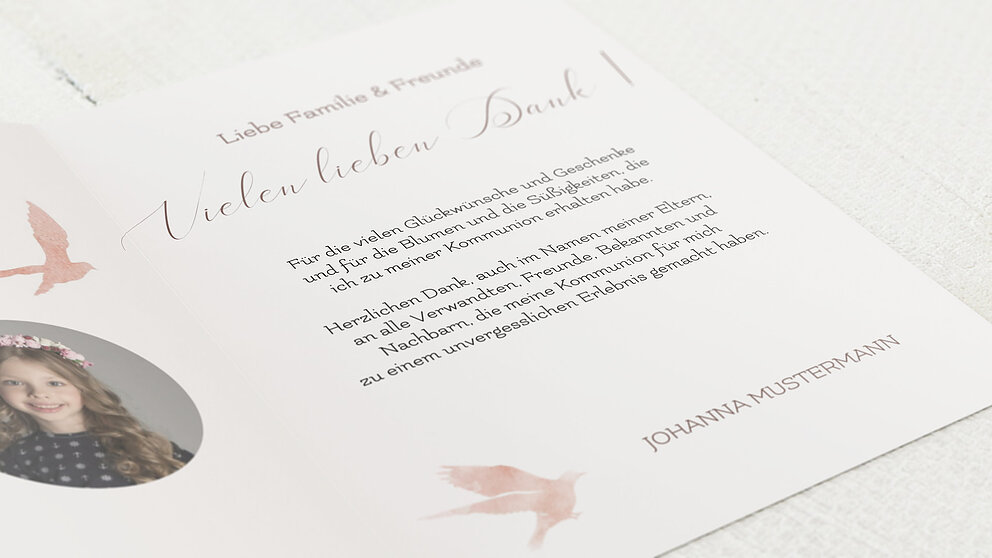 Liebe Familie & Freunde
Vielen lieben Dank
Für die vielen Glückwünsche und Geschenke
und für die Blumen und die Süßigkeiten, die
ich zu meiner Kommunion erhalten habe.
Herzlichen Dank, auch im Namen meiner Eltern,
an alle Verwandten, Freunde, Bekannten und
Nachbarn, die meine Kommunion für mich
zu einem unvergesslichen Erlebnis gemacht haben.
JOHANNA MUSTERMANN